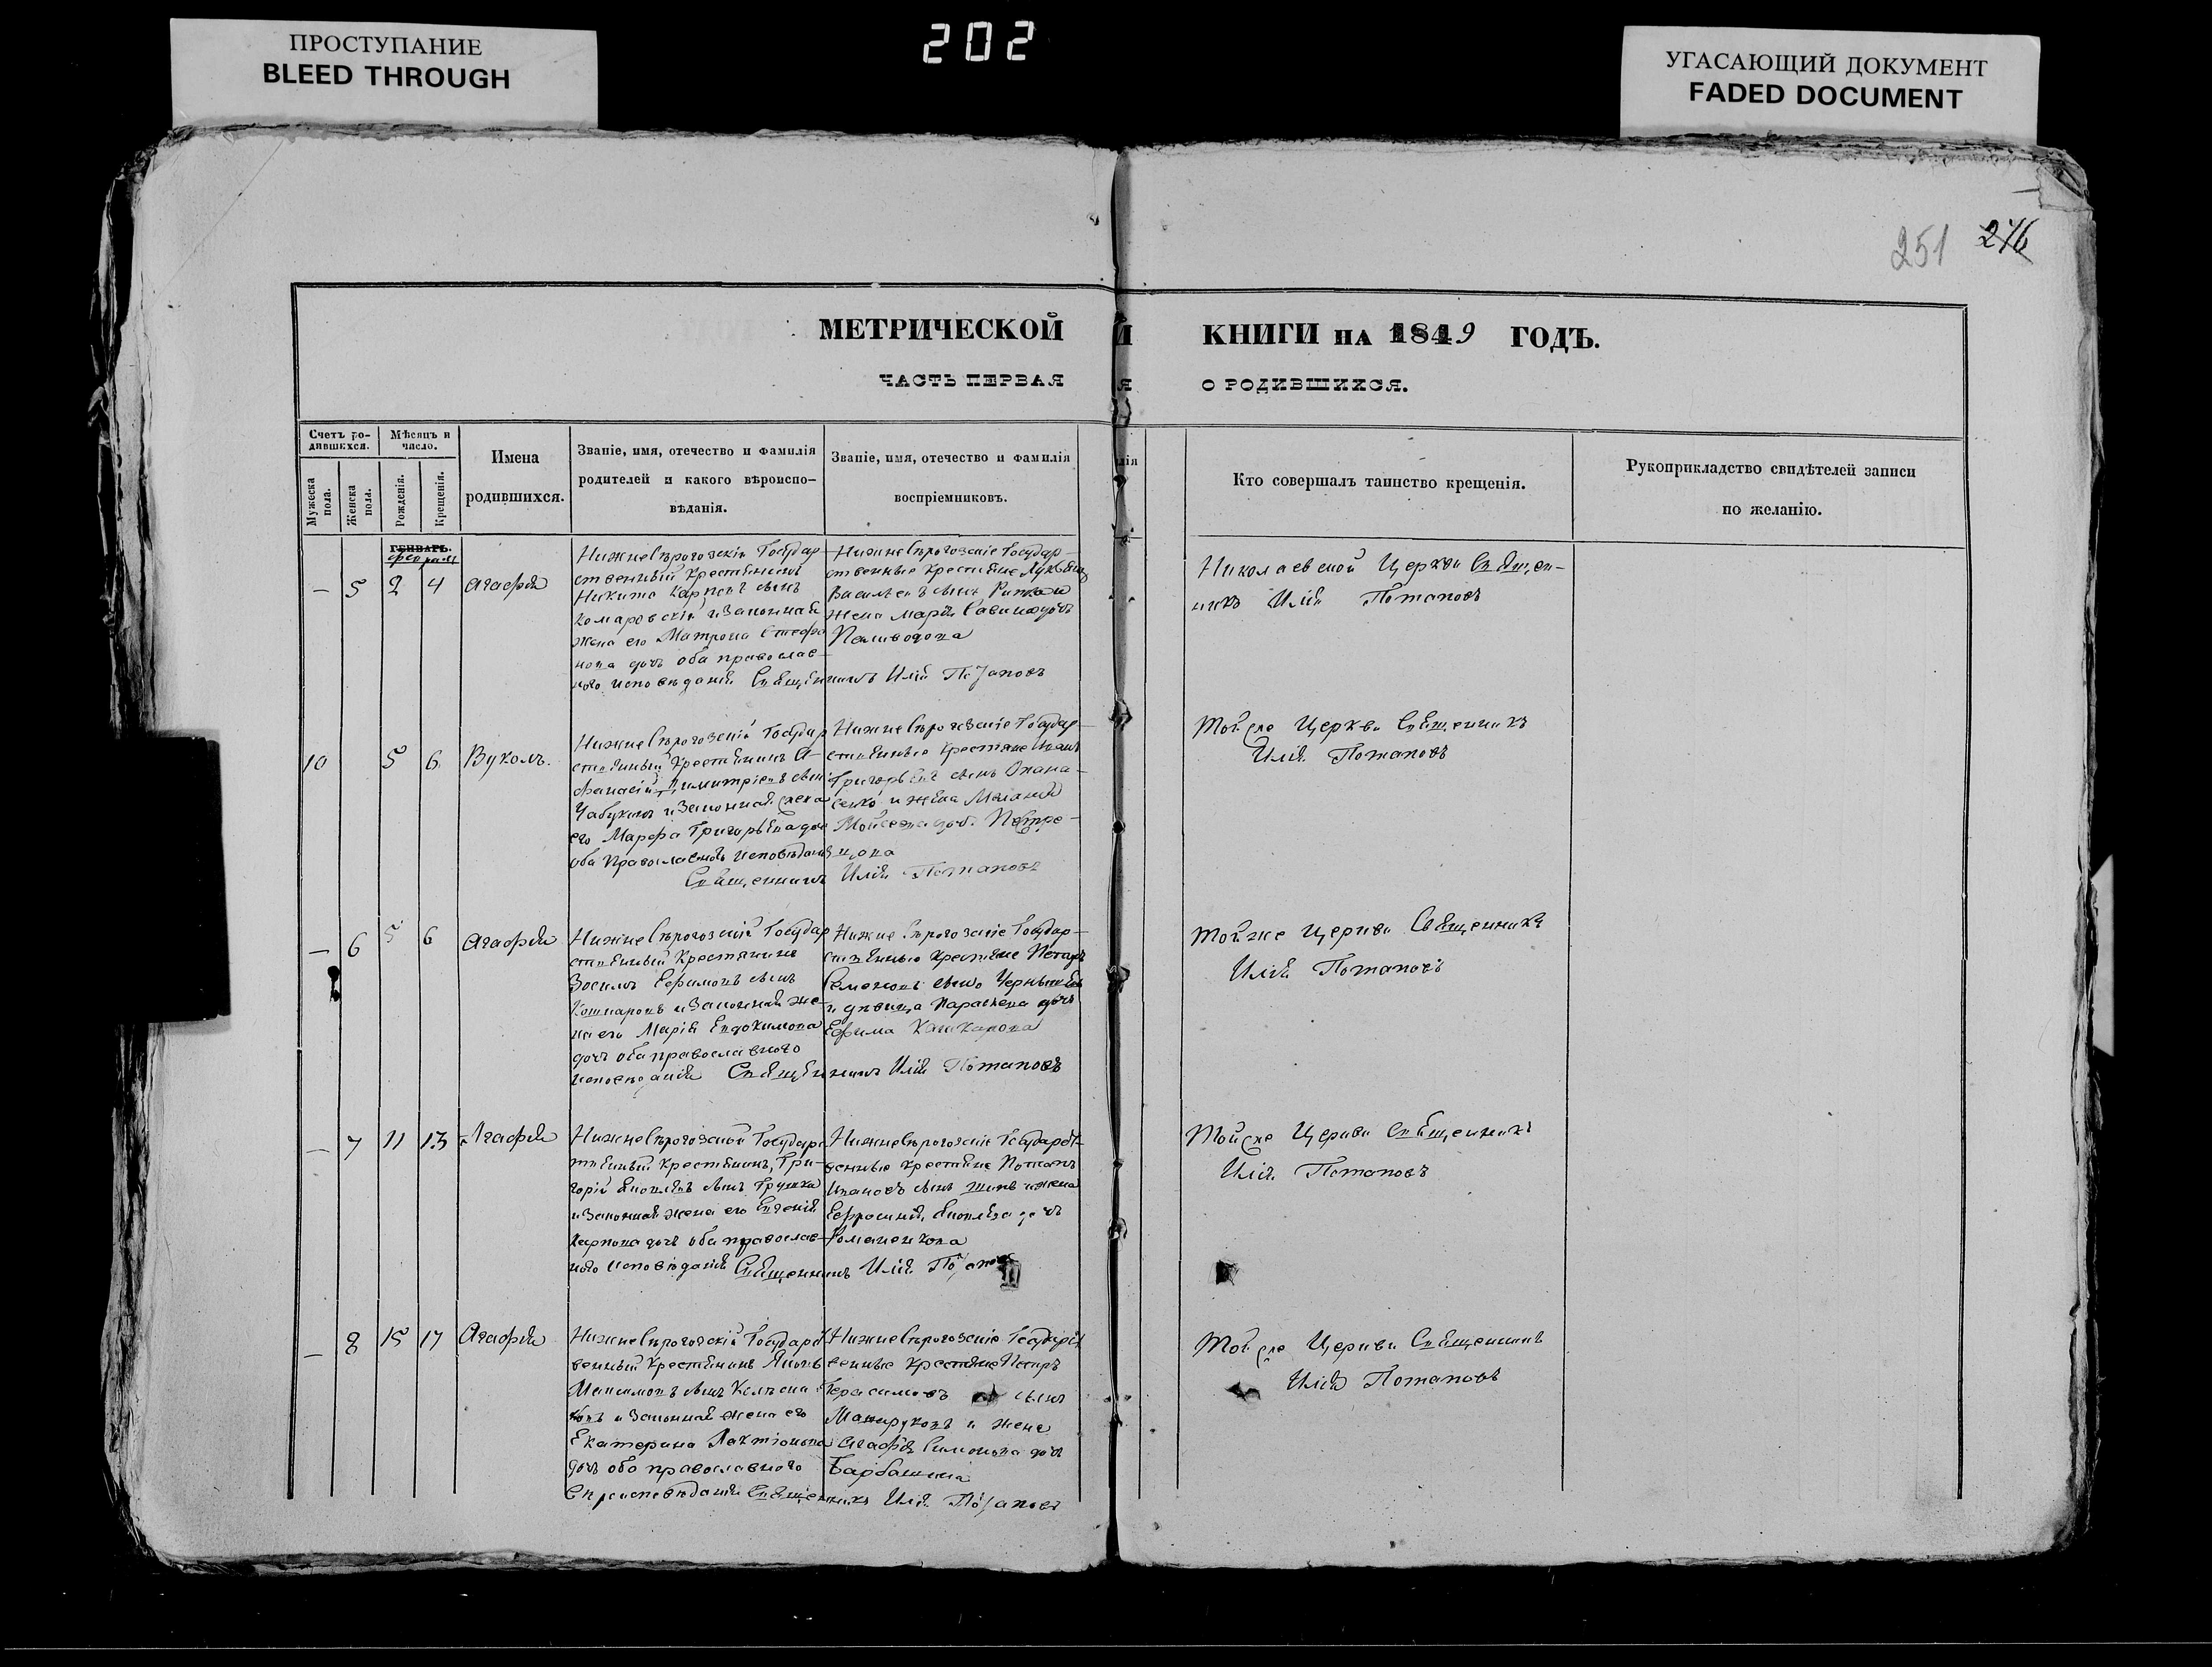 ПРОСТУПАНИЕ
BLEED THROUGH
202
УГАСАЮЩИЙ ДОКУМЕНТ
FADED DOCUMENT
251 246
МЕТРИЧЕСКОЙ КНИГИ НА 1849 ГОДЪ.
ЧАСТЬ ПЕРВАЯ О РОДИВШИХСЯ.
Счетъ ро-
дившихся.
Мѣсяцъ и
число.
Мужеска
пола.
Женска
пола.
Рожденія.
Крещенія.
Имена
родившихся.
Званіе, имя, отечество и фамилія
родителей и какого вѣроиспо-
вѣданія.
Званіе, имя, отечество и фамилія
воспріемниковъ.
Кто совершалъ таинство крещенія.
Рукоприкладство свидѣтелей записи
по желанію.
ГЕНВАРЬ.
— 5 2 4 Агафія
Нижнесѣрогозскій Государ-
ственный Крестянинъ
Никита Карповъ сынъ
Комаровскій и Законная
жена его Матрона Стефа
нова дочь оба православ-
ного исповѣданія Священникъ Илія Потаповъ
Нижнесѣрогозскіе Государ-
ственные Крестяне
Васильевъ сынъ
жена Марія Савина дочь
Николаевской Церкви Священ-
никъ Илія Потаповъ
10 5 6 Вуколъ.
Нижнесѣрогозскій Государ
ственный Крестянинъ А-
фанасій Димитріевъ сынъ
Чабукинъ и Законная жена
его Марфа Григорьева дочь
оба Православного исповѣданія
Священникъ Илія Потаповъ
Нижнесѣрогозскіе Государ-
ственные Крестяне Иванъ
Григорьевъ сынъ Опана-
сенко и жена Меланія
Мойсеева дочь Петре-
нкова
Тойже Церкви Священикъ
Илія Потаповъ
— 6 5 6 Агафія
Нижнесѣрогозскій Государ
ственный Крестянинъ
Зосима Ефимовъ сынъ
Кошкаровъ и Законная же-
на его Марія Евдокимова
дочь оба православного
исповѣданія Священникъ Илія Потаповъ
Нижнесѣрогозскіе Государ-
ственные Крестяне Петръ
Семеновъ сынъ
и дѣвица Параскева дочь
Ефима Кашкарова
Тойже Церкви Священникъ
Илія Потаповъ
— 7 11 13 Агафія
Нижнесѣрогозской Государс
твенный Крестянинъ, Гри-
горій Яковлевъ сынъ Грушка
и Законная жена его Евгенія
Карпова дочь оба православ-
ного исповѣданія Священникъ Илія Потаповъ
Нижнесѣрогозскіе Государст-
венные Крестяне Потапъ
Ивановъ сынъ и жена
Ефросинія, Яковлева дочь
Романенкова
Тойже Церкви Священикъ
Илія Потаповъ
— 8 15 17 Агафія
Нижнесѣрогозскій Государст
венный Крестянинъ Яковъ
Максимовъ сынъ
ковъ и Законная жена его
Екатерина Лактіонова
дочь оба православного
вѣроисповѣданія Священникъ Илія Потаповъ
Нижнесѣрогозскіе Государст
венные Крестяне Петръ
Герасимовъ сынъ
и жена
Агафія Симонова дочь
Барбашина
Тойже Церкви Священникъ
Илія Потаповъ